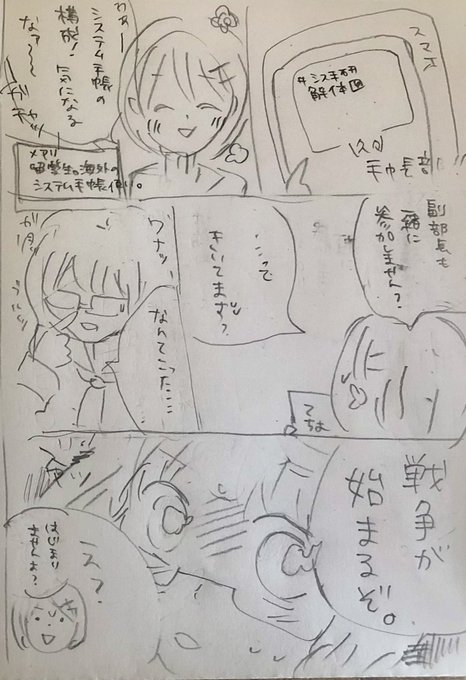 スマホ
#シス手研
解体図
手帳部
わあー
システム手帳の
構成!気になる
なァ〜〜
ガチャッ
メアリ
留学生。海外の
システム手帳使い。
副部長も
一緒に
参加しません?
…って
きいてます?
ワナッ…
なんてこった…
ガタ
てちょ
戦争が
始まるぞ。
え?
はじまり
ませんよ?